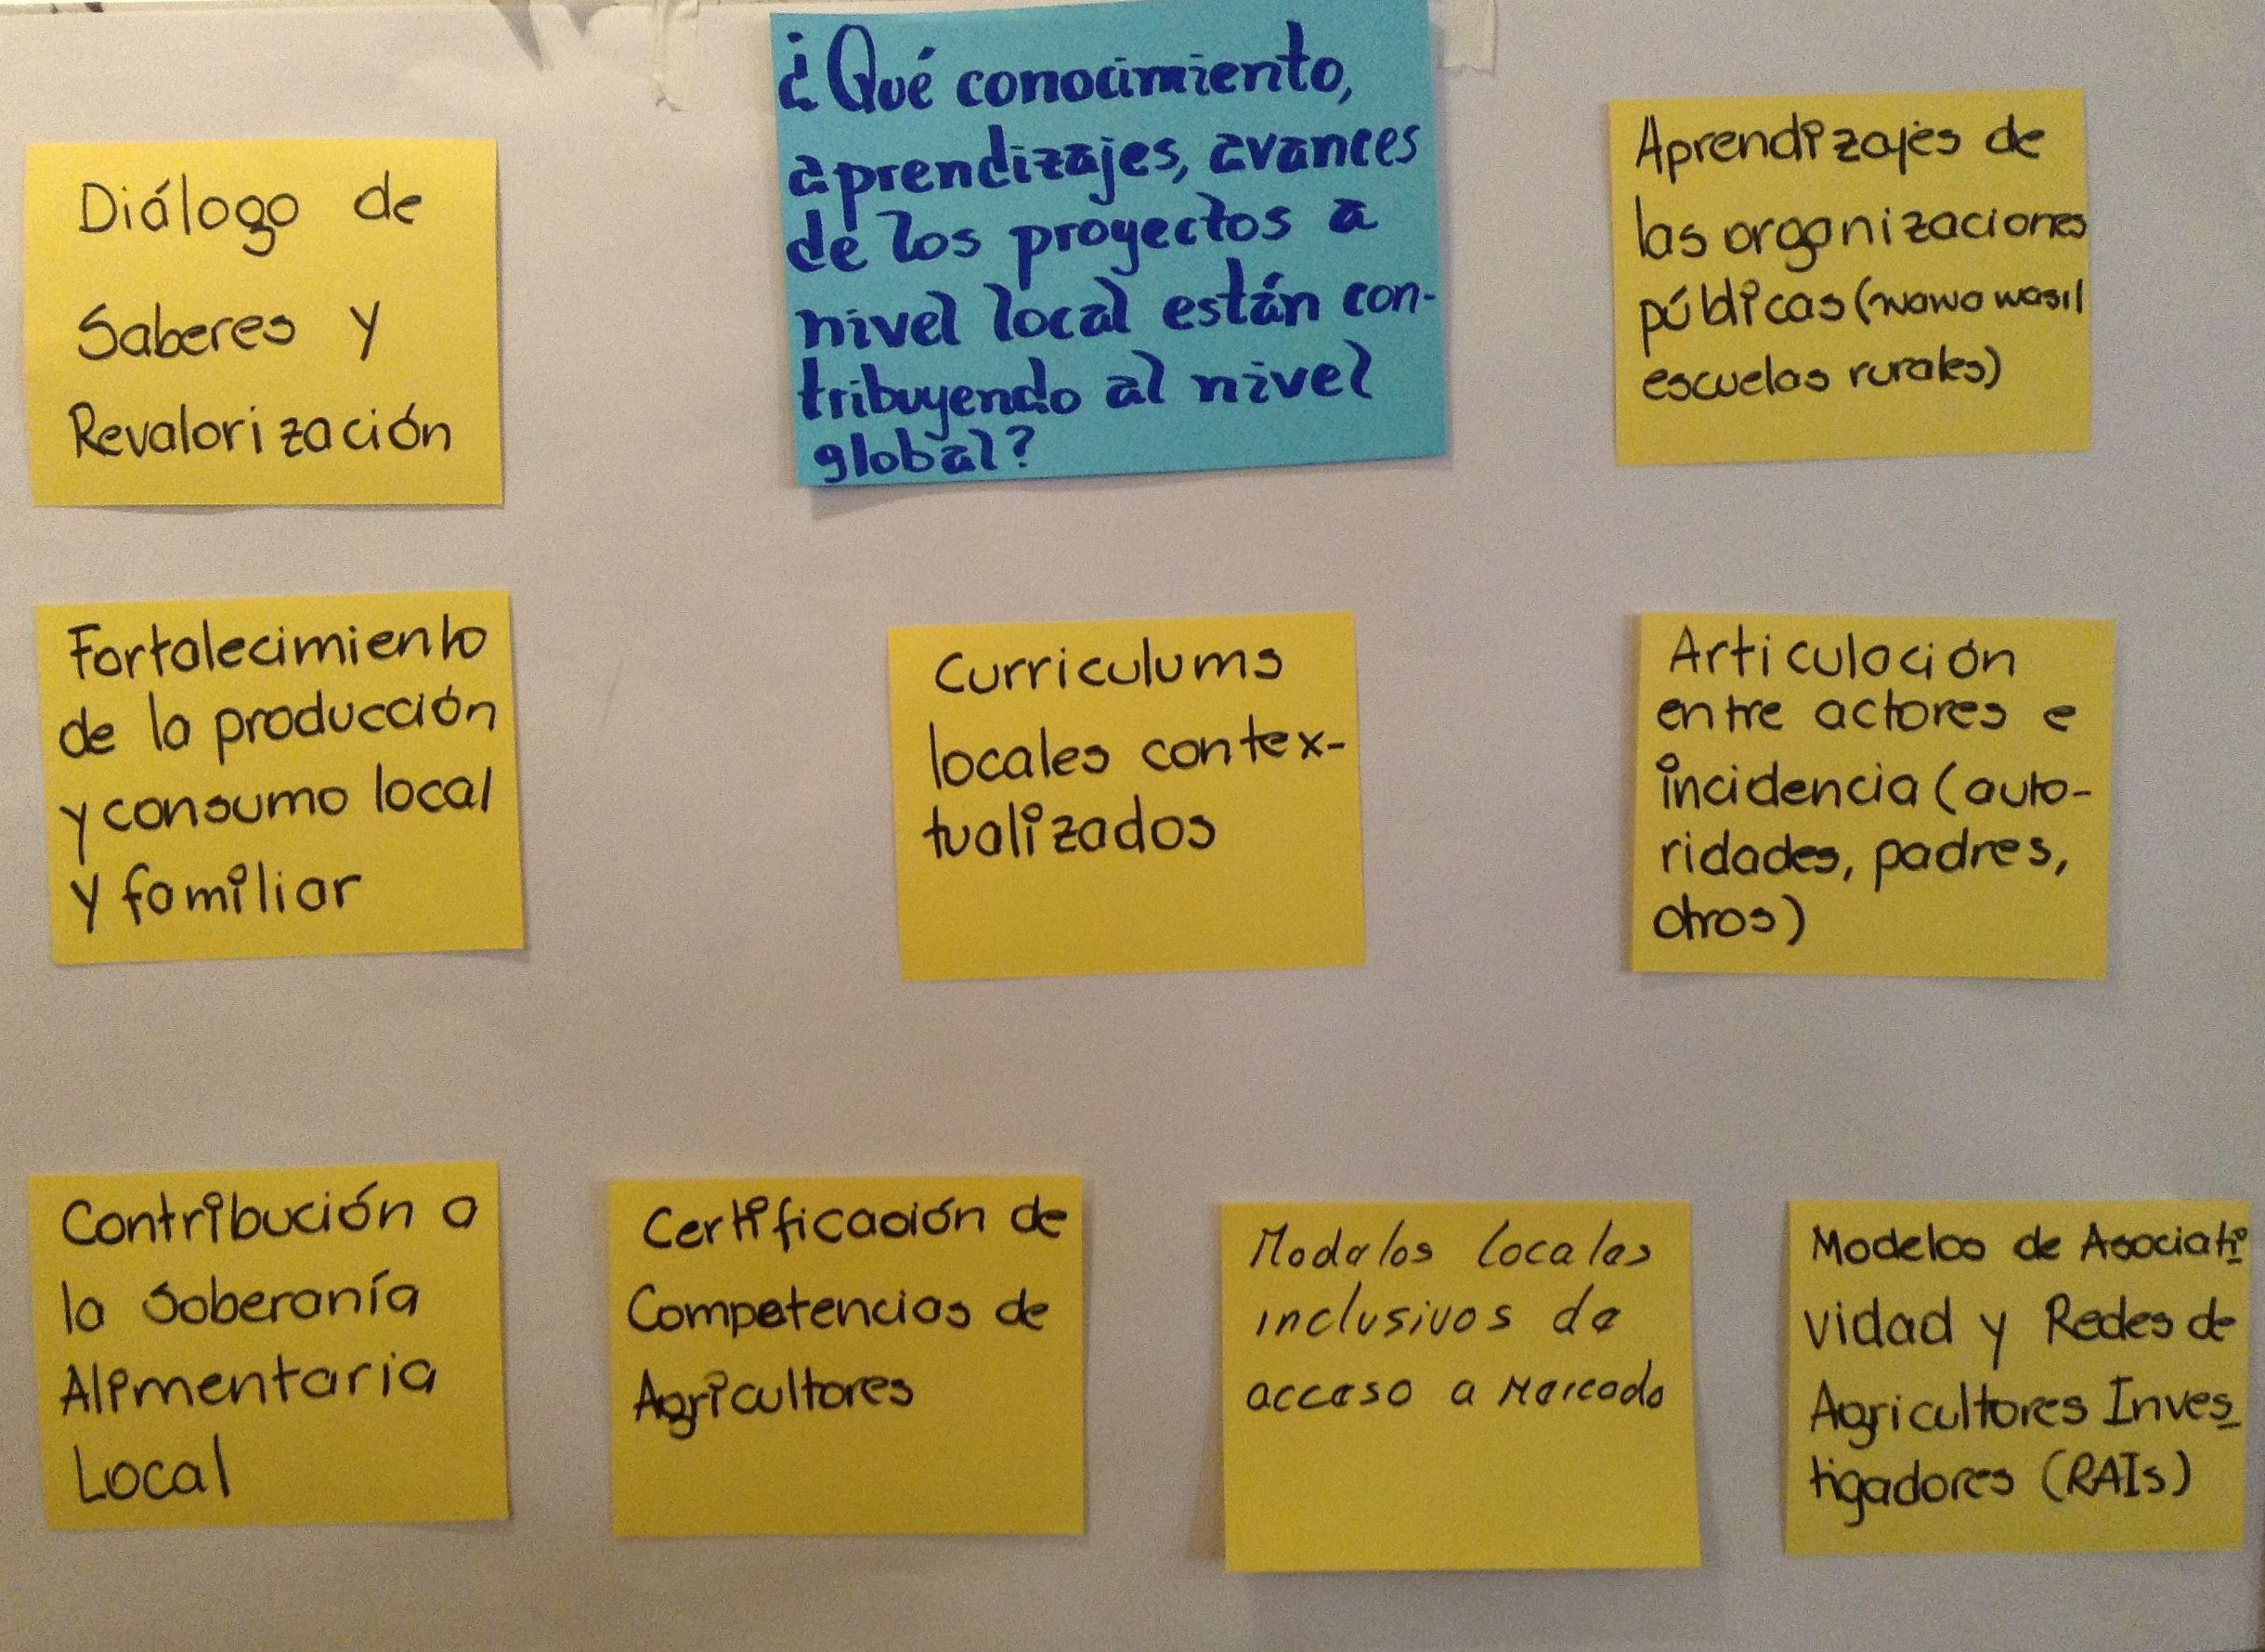 ¿Qué conocimiento,
aprendizajes, avances
de los proyectos a
nivel local están con-
tribuyendo al nivel
global?
Diálogo de
Saberes y
Revalorización
Aprendizajes de
las organizaciones
públicas (wawa wasi
escuelas rurales)
Fortalecimiento
de la producción
y consumo local
y familiar
Curriculums
locales contex-
tualizados
Articulación
entre actores e
incidencia (auto-
ridades, padres,
otros)
Contribución a
la Soberanía
Alimentaria
Local
Certificación de
Competencias de
Agricultores
Modelos Locales
inclusivos de
acceso a Mercado
Modelos de Asociati-
vidad y Redes de
Agricultores Inves-
tigadores (RAIs)